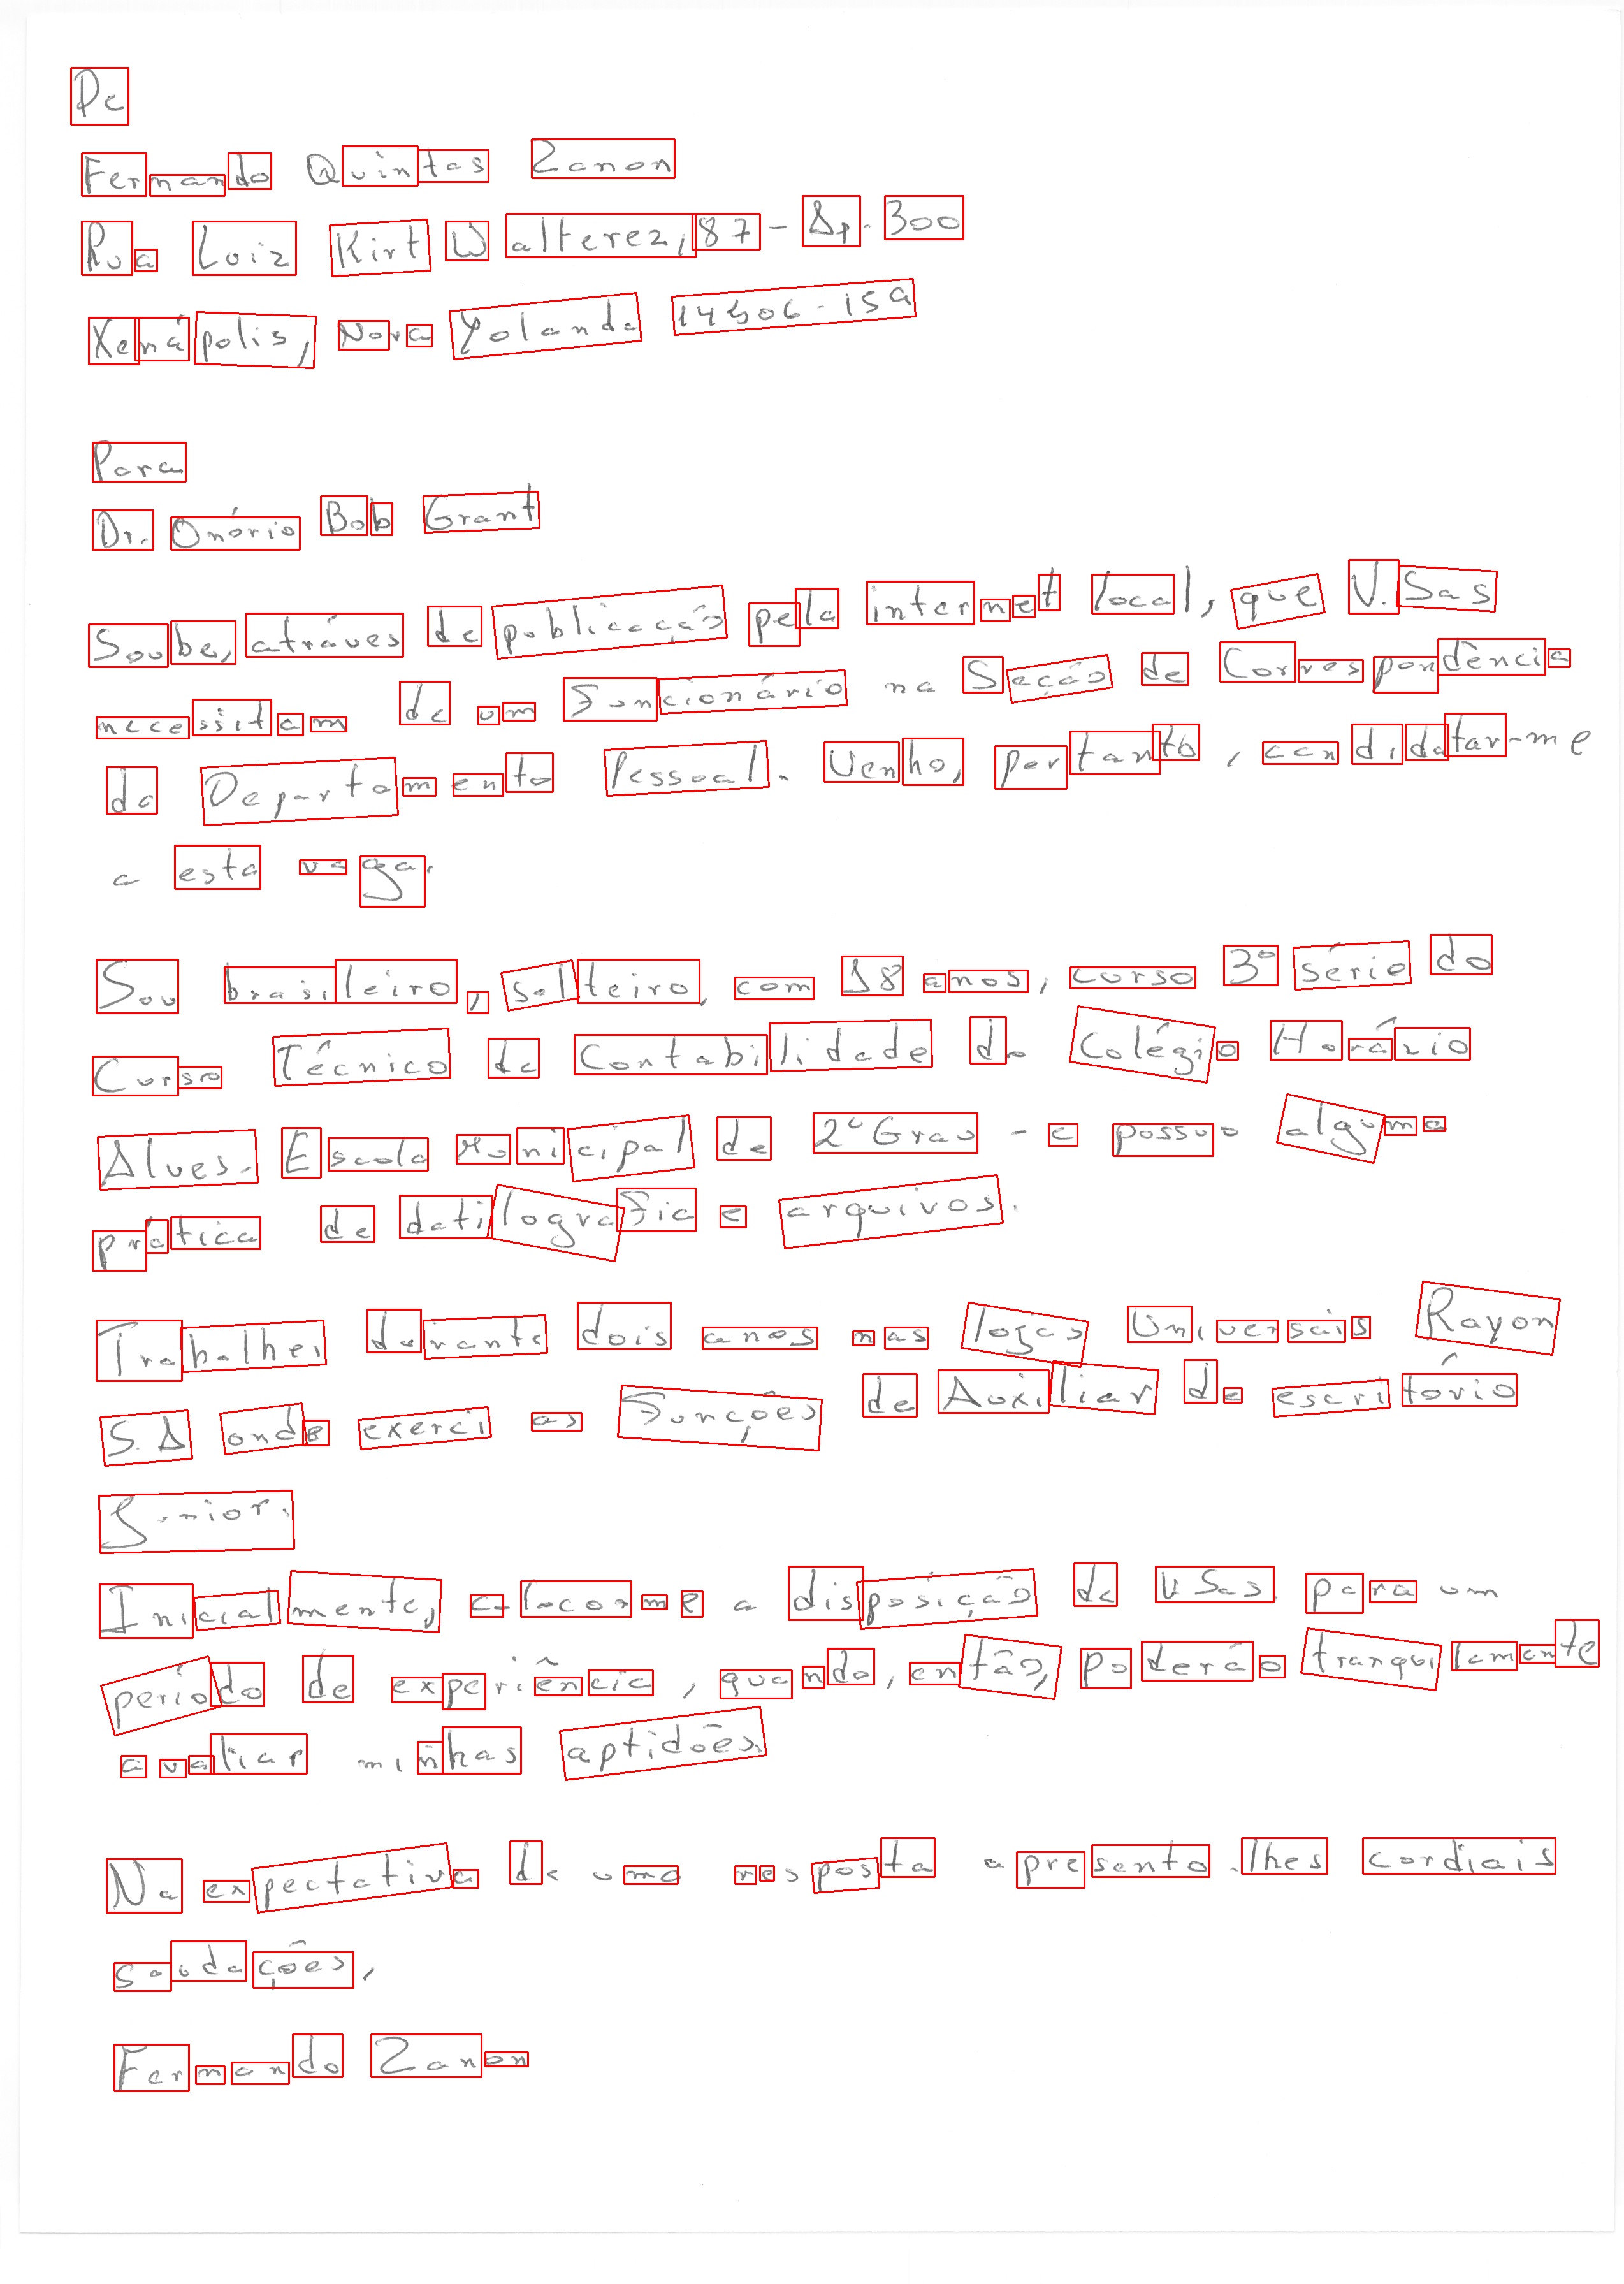 De
Fernando Quintas Zanon
Rua Luiz Kirt Walterez, 87 - Ap. 300
Xenápolis, Nova Yolanda 14506-159
Para
Dr. Onório Bob Grant
Soube, atráves de publicação pela internet local, que V.Sas
necessitam de um funcionário na Seção de Correspondência
do Departamento Pessoal. Venho, portanto, candidatar-me
a esta vaga.
Sou brasileiro, solteiro, com 18 anos, curso 3º série do
Curso Técnico de Contabilidade do Colégio Horário
Alves. Escola Municipal de 2º Grau - e possuo alguma
prática de datilografia e arquivos.
Trabalhei durante dois anos nas lojas Universais Rayon
S.A onde exerci as funções de Auxiliar de escritório
Júnior.
Inicialmente, coloco-me a disposição de V.Sas. para um
período de experiência, quando, então, poderão tranquilamente
avaliar minhas aptidões.
Na expectativa de uma resposta apresento-lhes cordiais
saudações,
Fernando Zanon